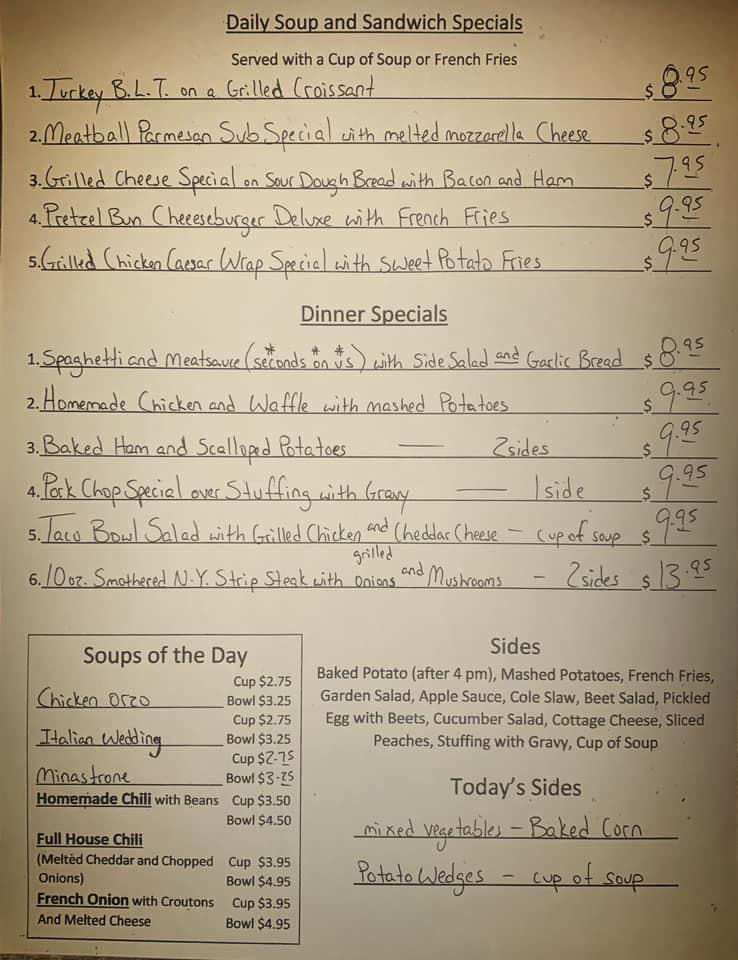 Daily Soup and Sandwich Specials
Served with a Cup of Soup or French Fries
1. Turkey B.L.T. on a Grilled Croissant $ 8.95
2. Meatball Parmesan Sub Special with melted mozzarella Cheese $ 8.95
3. Grilled Cheese Special on Sour Dough Bread with Bacon and Ham $ 7.95
4. Pretzel Bun Cheeeseburger Deluxe with French Fries $ 9.95
5. Grilled Chicken Caesar Wrap Special with Sweet Potato Fries $ 9.95
Dinner Specials
1. Spaghetti and Meatsauce (*seconds *on *us) with Side Salad and Garlic Bread $ 8.95
2. Homemade Chicken and Waffle with mashed Potatoes $ 9.95
3. Baked Ham and Scalloped Potatoes — 2sides $ 9.95
4. Pork Chop Special over Stuffing with Gravy — 1side $ 9.95
5. Taco Bowl Salad with Grilled Chicken and Cheddar Cheese – cup of soup $ 9.95
6. 10oz. Smothered N.Y. Strip Steak with grilled Onions and Mushrooms – 2sides $ 13.95
Soups of the Day
Cup $2.75
Chicken Orzo Bowl $3.25
Cup $2.75
Italian Wedding Bowl $3.25
Cup $2.75
Minastrone Bowl $3.25
Homemade Chili with Beans Cup $3.50
Bowl $4.50
Full House Chili
(Melted Cheddar and Chopped Cup $3.95
Onions) Bowl $4.95
French Onion with Croutons Cup $3.95
And Melted Cheese Bowl $4.95
Sides
Baked Potato (after 4 pm), Mashed Potatoes, French Fries,
Garden Salad, Apple Sauce, Cole Slaw, Beet Salad, Pickled
Egg with Beets, Cucumber Salad, Cottage Cheese, Sliced
Peaches, Stuffing with Gravy, Cup of Soup
Today's Sides
mixed vegetables – Baked Corn
Potato Wedges – cup of soup